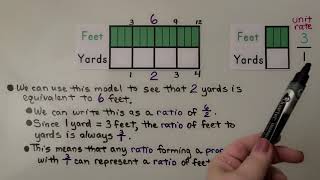 3 6 9 12 unit
rate
Feet Feet 3
Yards Yards 1
1 2 3 4
•We can use this model to see that 2 yards is
equivalent to 6 feet.
•We can write this as a ratio of 6/2.
•Since 1 yard = 3 feet, the ratio of feet to
yards is always 3/1.
•This means that any ratio forming a pro
with 3/1 can represent a ratio of feet